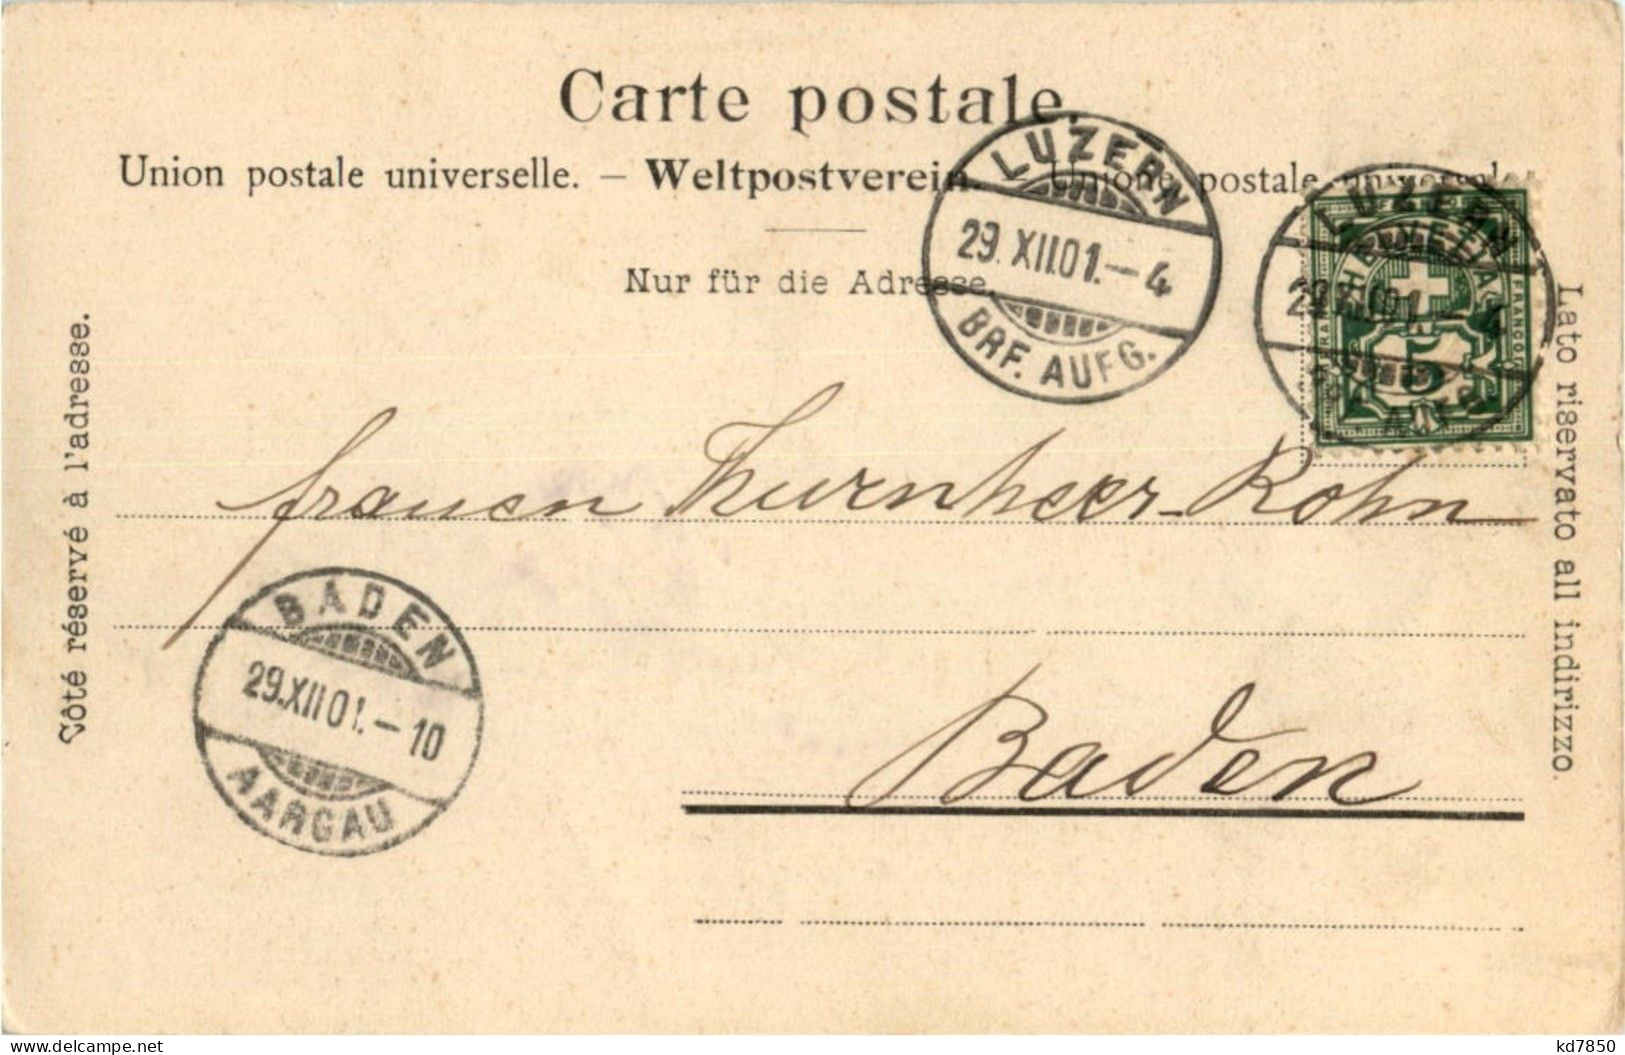 Carte postale.
Union postale universelle. — Weltpostverein. — Unione postale universale.
Nur für die Adresse.
Côté réservé à l'adresse.
Lato riservato all indirizzo.
LUZERN
29.XII.01.—4
BRF. AUFG.
LUZERN
29.XII.01.—4
HELVETIA
FRANCO
5
frauen Thurnheer-Rohn
BADEN
29.XII01.—10
AARGAU
Baden
delcampe.net
kd7850